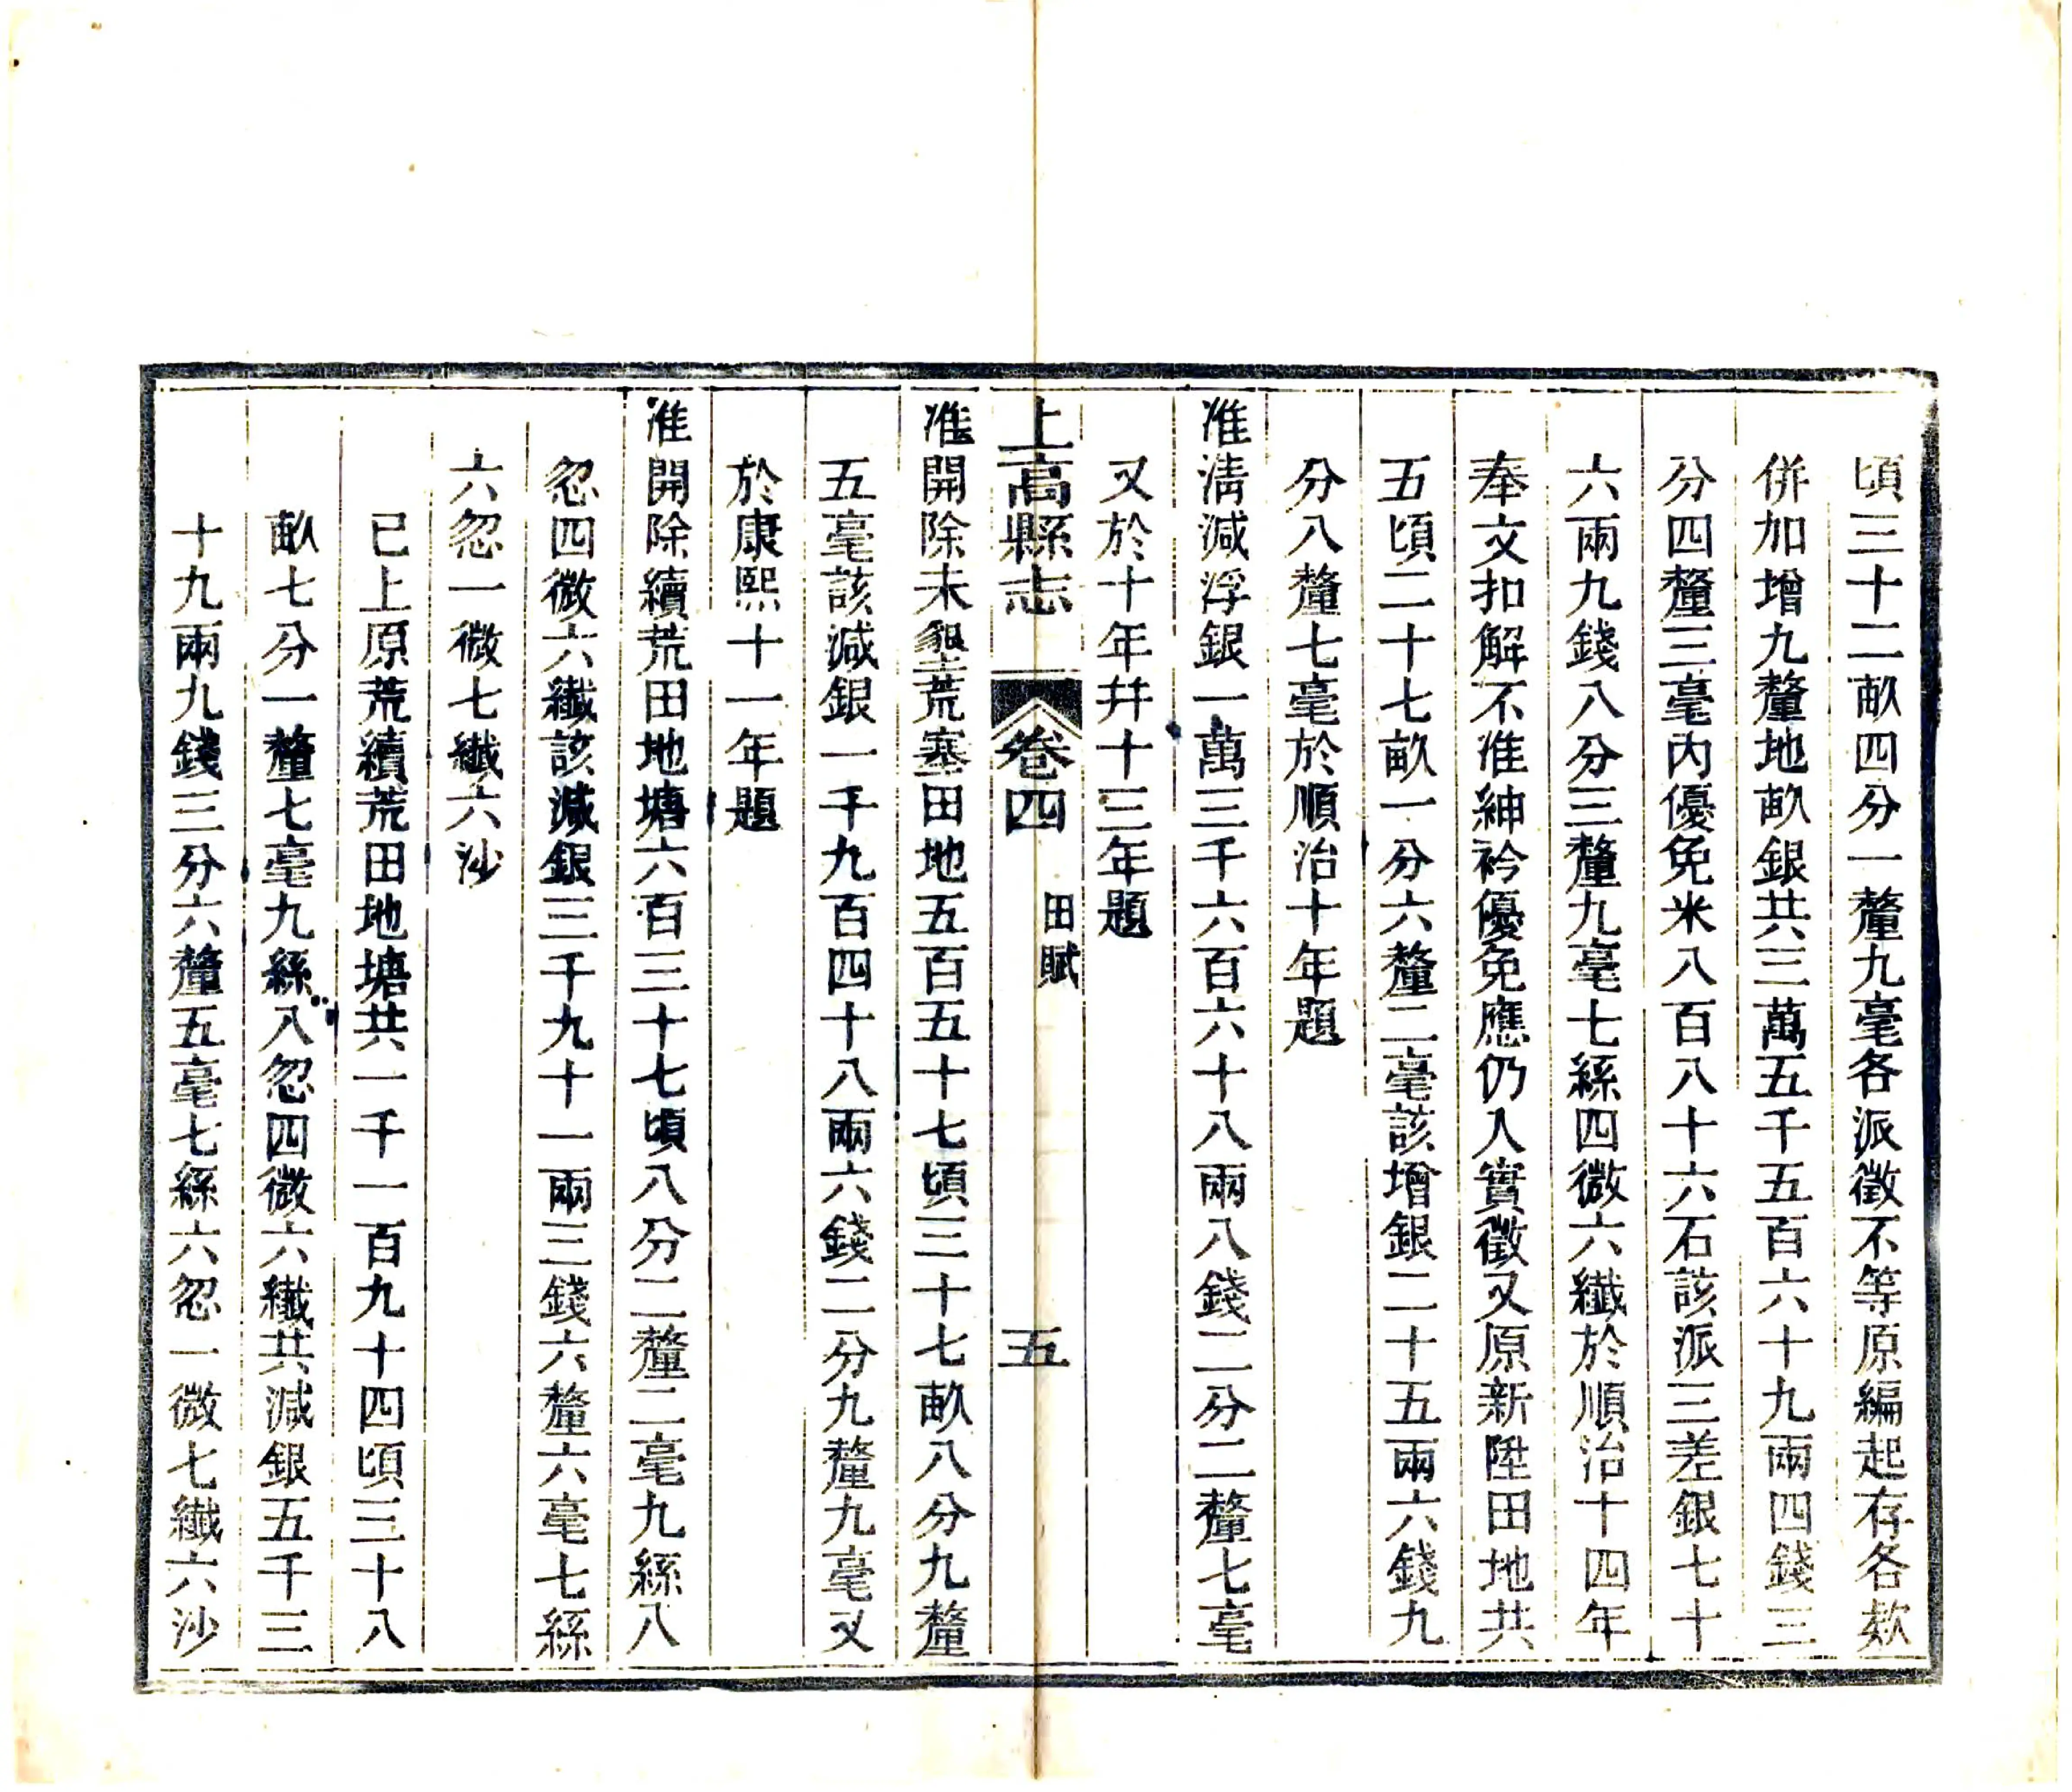 頃三十二畝四分一釐九毫各派徵不等原編起存各欵
併加增九釐地畝銀共三萬五千五百六十九兩四錢三
分四釐三毫內優免米八百八十六石該派三差銀七十
六兩九錢八分三釐九毫七絲四微六纖於順治十四年
奉文扣解不准紳衿優免應仍入實徵又原新陞田地共
五頃二十七畝一分六釐二毫該增銀二十五兩六錢九
分八釐七毫於順治十年題
准清減浮銀一萬三千六百六十八兩八錢二分二釐七毫
又於十年幷十三年題
上高縣志 卷四 田賦 五
准開除未墾荒塞田地五百五十七頃三十七畝八分九釐
五毫該減銀一千九百四十八兩六錢二分九釐九毫又
於康熙十一年題
准開除續荒田地塘六百三十七頃八分二釐二毫九絲八
忽四微六纖該減銀三千九十一兩三錢六釐六毫七絲
六忽一微七纖六沙
已上原荒續荒田地塘共一千一百九十四頃三十八
畝七分一釐七毫九絲八忽四微六纖共減銀五千三
十九兩九錢三分六釐五毫七絲六忽一微七纖六沙